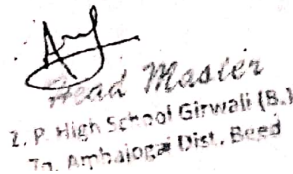 Head Master
Z. P. High School Girwali (B.)
Tq. Ambajogai Dist. Beed